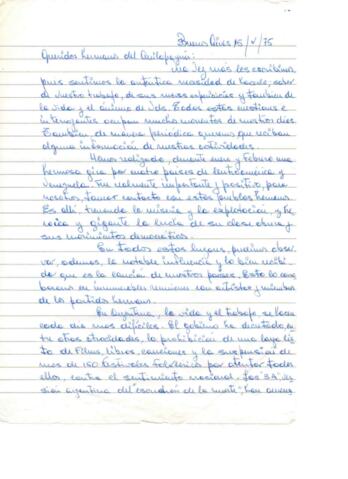 Buenos Aires 15/V/75
Queridos hermanos del Quilapayún:
una vez más les escribimos
pues sentimos la auténtica necesidad de hacerlo, saber
de vuestro trabajo, de sus nuevas experiencias y también de
la vida y el ánimo de Uds. Todas estas cuestiones e
interrogantes ocupan muchos momentos de nuestros días.
También de manera periódica queremos que reciban
alguna información de nuestras actividades.
Hemos realizado, durante enero y febrero una
hermosa gira por cuatro países de Centroamérica y
Venezuela. Fue realmente importante y positivo, para
nosotros, tomar contacto con estos pueblos hermanos.
Es allí, tremenda la miseria y la explotación, y he
roica y gigante la lucha de su clase obrera y
sus movimientos democráticos.
En todos estos lugares, pudimos obser
var, además, la notable influencia y lo bien recibi
do que es la canción de nuestros países. Esto lo
en innumerables reuniones con artistas y miembros
de los partidos hermanos.
En Argentina, la vida y el trabajo se hacen
cada día más difíciles. El gobierno ha decretado, en
tre otras atrocidades, la prohibición de una larga lis
ta de films, libros, canciones y la suspensión de
más de 160 festivales folklóricos por atentar todos
ellos, contra el sentimiento nacional. Las "3A", ver
sión argentina del "escuadrón de la muerte", han